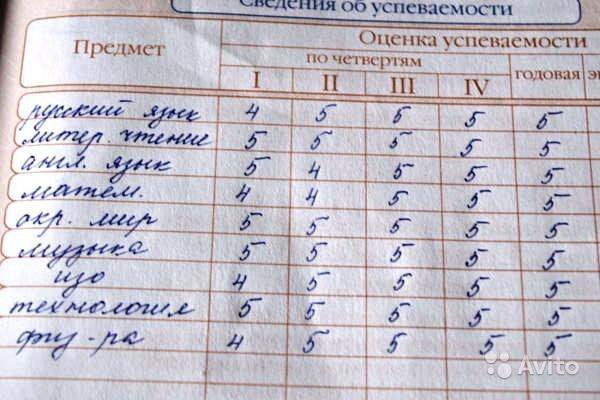 Сведения об успеваемости
Предмет
Оценка успеваемости
по четвертям
годовая
I II III IV
русский язык 4 5 5 5 5
литер. чтение 5 5 5 5 5
англ. язык 5 4 5 5 5
матем. 4 4 5 5 5
окр. мир 5 5 5 5 5
музыка 5 5 5 5 5
изо 4 5 5 5 5
технология 5 5 5 5 5
физ-ра 4 5 5 5 5
Avito